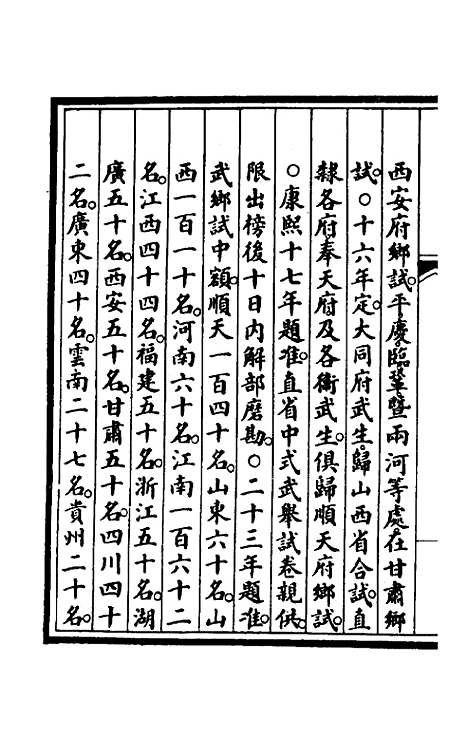 西安府鄉試。平慶臨鞏暨兩河等處在甘肅鄉
試。○十六年定。大同府武生。歸山西省合試。直
隸各府奉天府及各衛武生。俱歸順天府鄉試。
○康熙十七年題准。直省中式武舉試卷親供。
限出榜後十日內解部磨勘。○二十三年題准。
武鄉試中額。順天一百四十名。山東六十名。山
西一百一十名。河南六十名。江南一百六十二
名。江西四十四名。福建五十名。浙江五十名。湖
廣五十名。西安五十名。甘肅五十名。四川四十
二名。廣東四十名。雲南二十七名。貴州二十名。